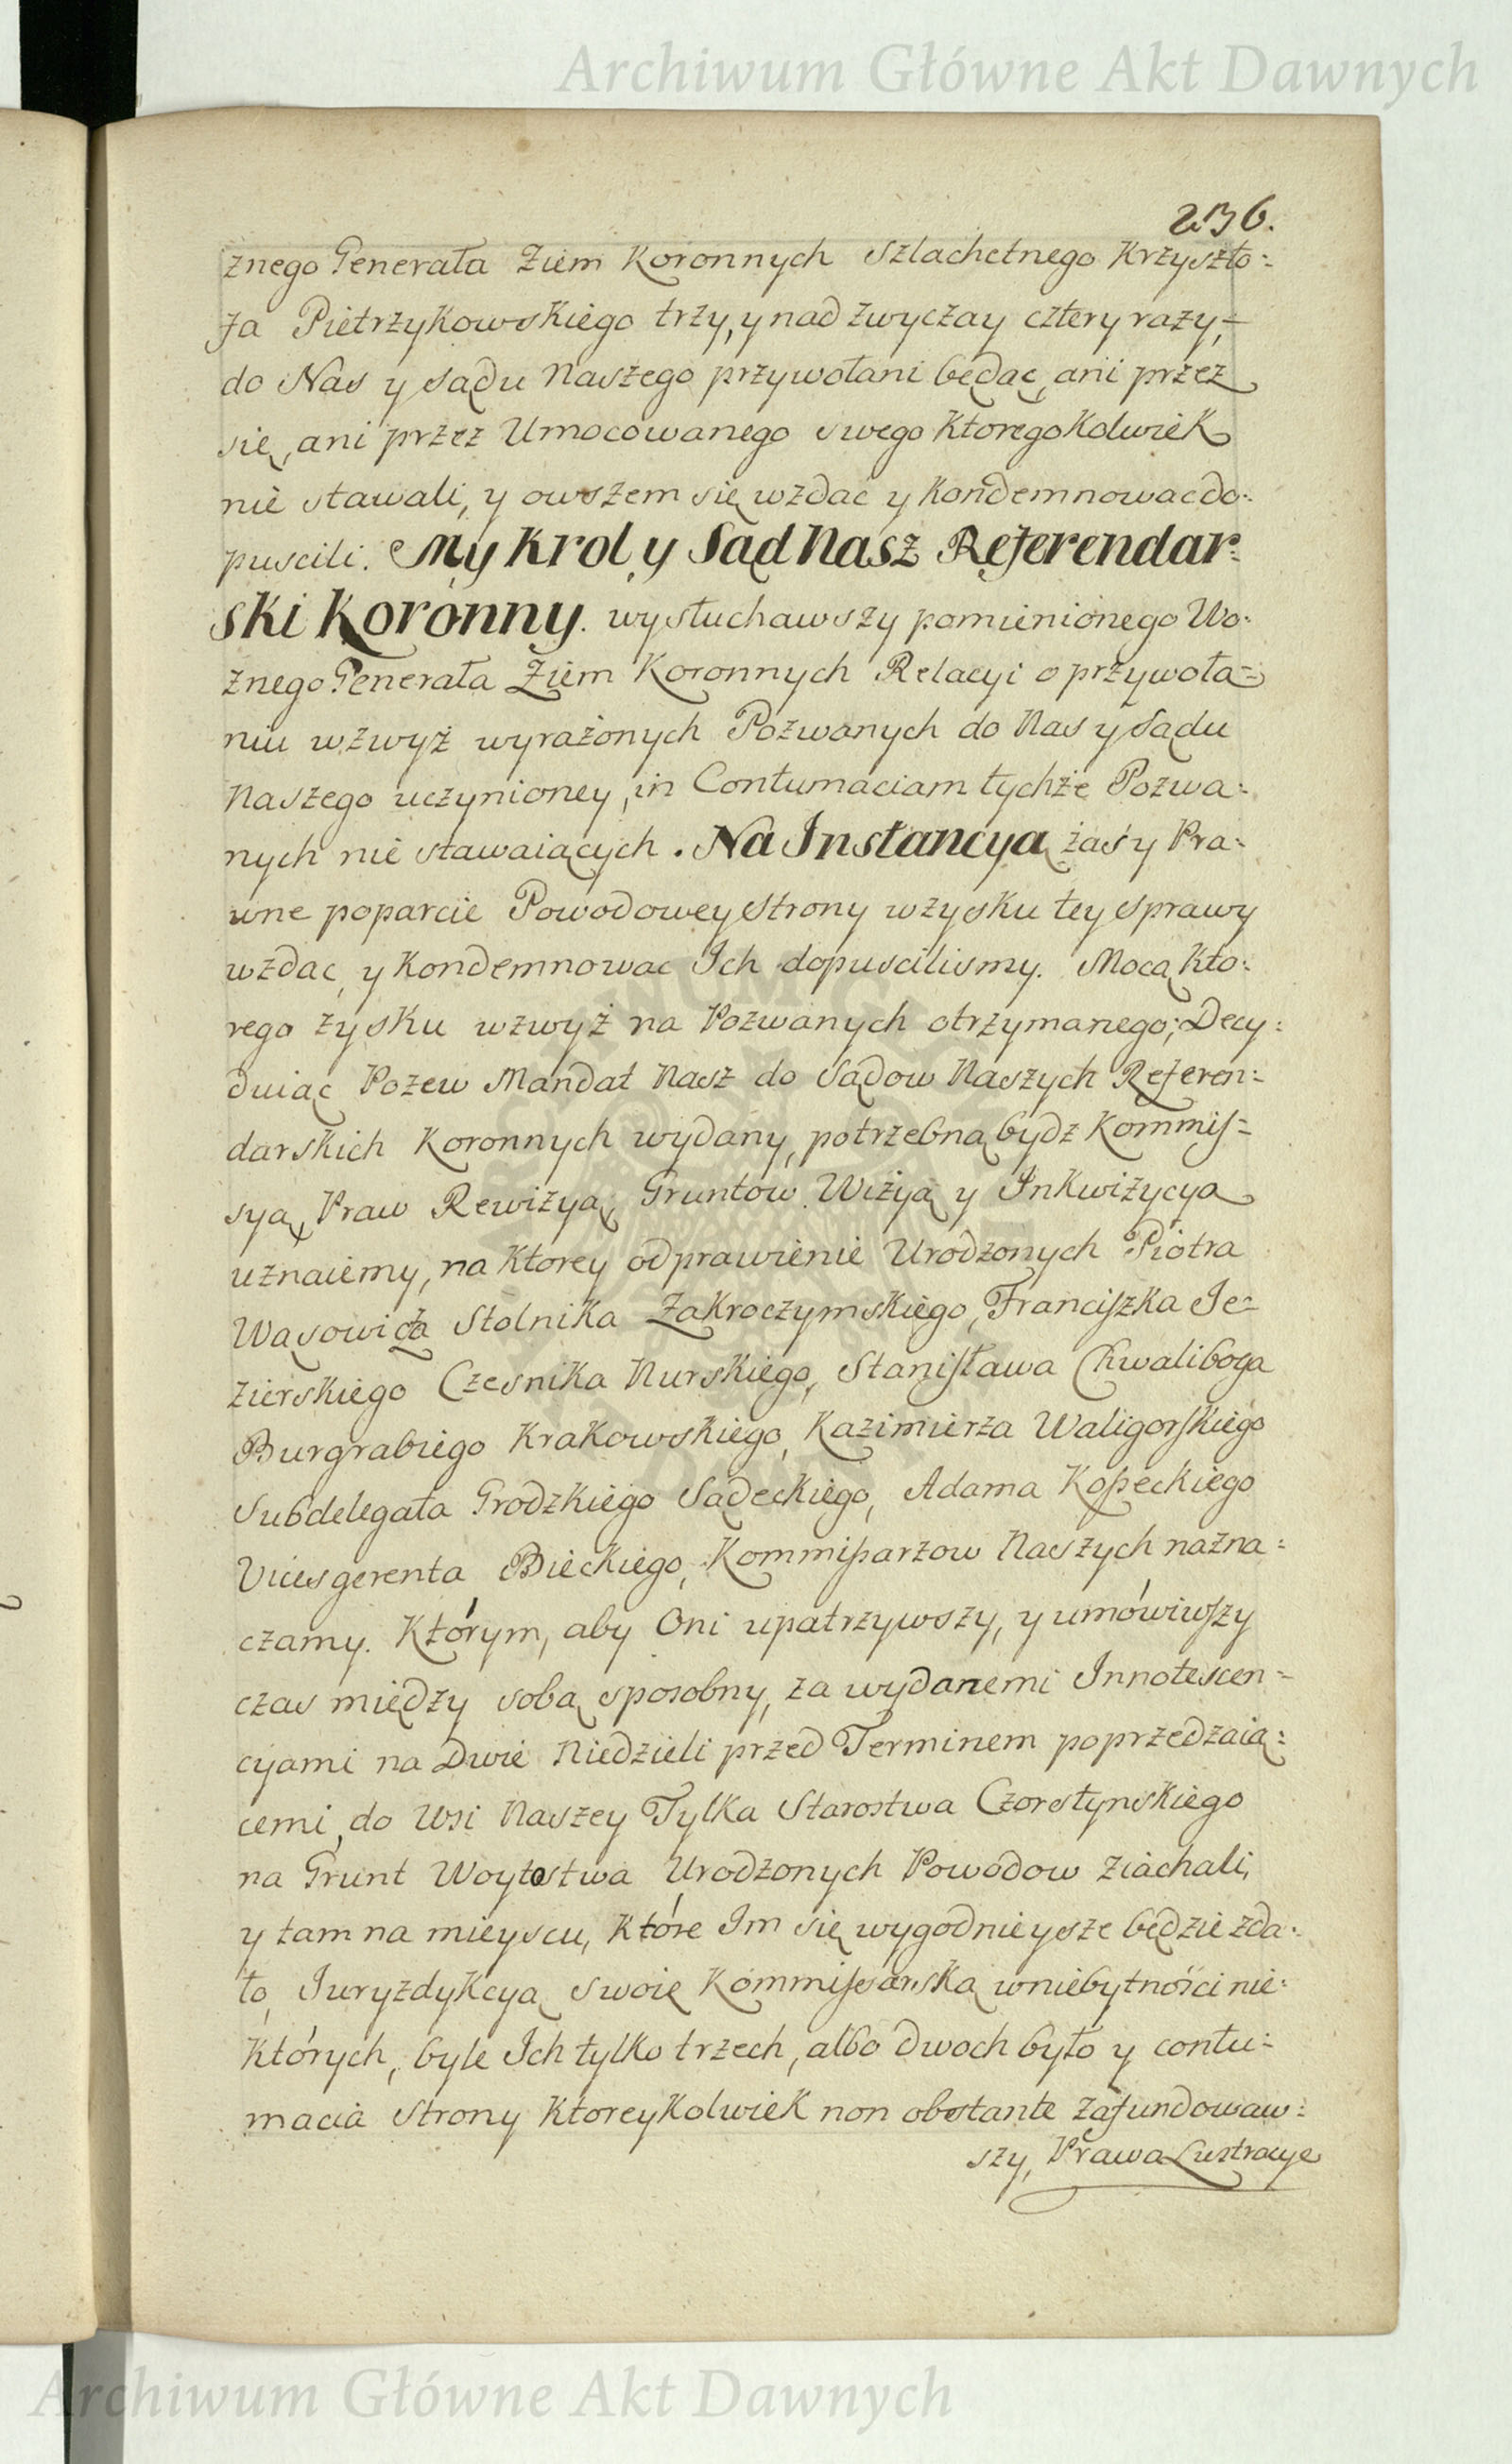 Archiwum Główne Akt Dawnych
236.
znego Generała Ziem Koronnych Szlachetnego Krzyszto:
fa Pietrzykowskiego trzy, y nad zwyczay cztery razy,
do Nas y Sądu Naszego przywołani będąc, ani przez
się, ani przez Umocowanego swego ktoregokolwiek
nie stawali, y owszem się wzdać y kondemnować do:
puscili. My Krol y Sąd Nasz Referendar:
ski Koronny. wysłuchawszy pomienionego Wo:
znego Generała Ziem Koronnych Relacyi o przywoła=
niu wzwyż wyrażonych Pozwanych do Nas y Sądu
Naszego uczynioney, in Contumaciam tychże Pozwa:
nych nie stawaiących. Na Instancyą zaś y Pra:
wne poparcie Powodowey Strony w zysku tey sprawy
wzdac, y kondemnowac Ich dopuscilismy. Mocą kto:
rego zysku wzwyż na Pozwanych otrzymanego; Decy:
duiąc Pozew Mandat Nasz do Sądow Naszych Referen:
darskich Koronnych wydany, potrzebną bydz Kommis=
syą, Praw Rewizyą, Gruntow Wizyą y Inkwizycyą
uznaiemy, na ktorey odprawienie Urodzonych Piotra
Wąsowicza Stolnika Zakroczymskiego, Franciszka Ie=
zierskiego Czesnika Nurskiego, Stanisława Chwaliboga
Burgrabiego Krakowskiego, Kazimierza Waligorskiego
Subdelegata Grodzkiego Sądeckiego, Adama Kopeckiego
Vicesgerenta Bieckiego, Kommissarzow Naszych nazna:
czamy. Którym, aby Oni upatrzywszy, y umówiwszy
czas między sobą sposobny, za wydanemi Innotescen=
cyami na Dwie Niedzieli przed Terminem poprzedzaią:
cemi, do Wsi Naszey Tylka Starostwa Czorstynskiego
na Grunt Woytostwa Urodzonych Powodow ziachali,
y tam na mieyscu, które Im się wygodnieysze będzie zda:
ło, Iuryzdykcyą swoię Kommissarską w niebytności nie:
których, byle Ich tylko trzech, albo dwoch było y contu=
macia Strony ktoreykolwiek non obstante zafundowaw:
szy, Prawa Lustracye
Archiwum Główne Akt Dawnych